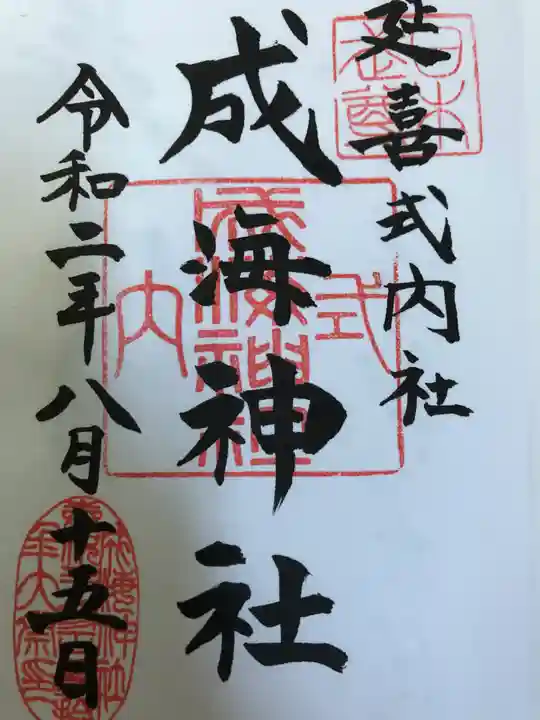 延喜式内社
成海神社
令和二年八月十五日
式内
成海神社